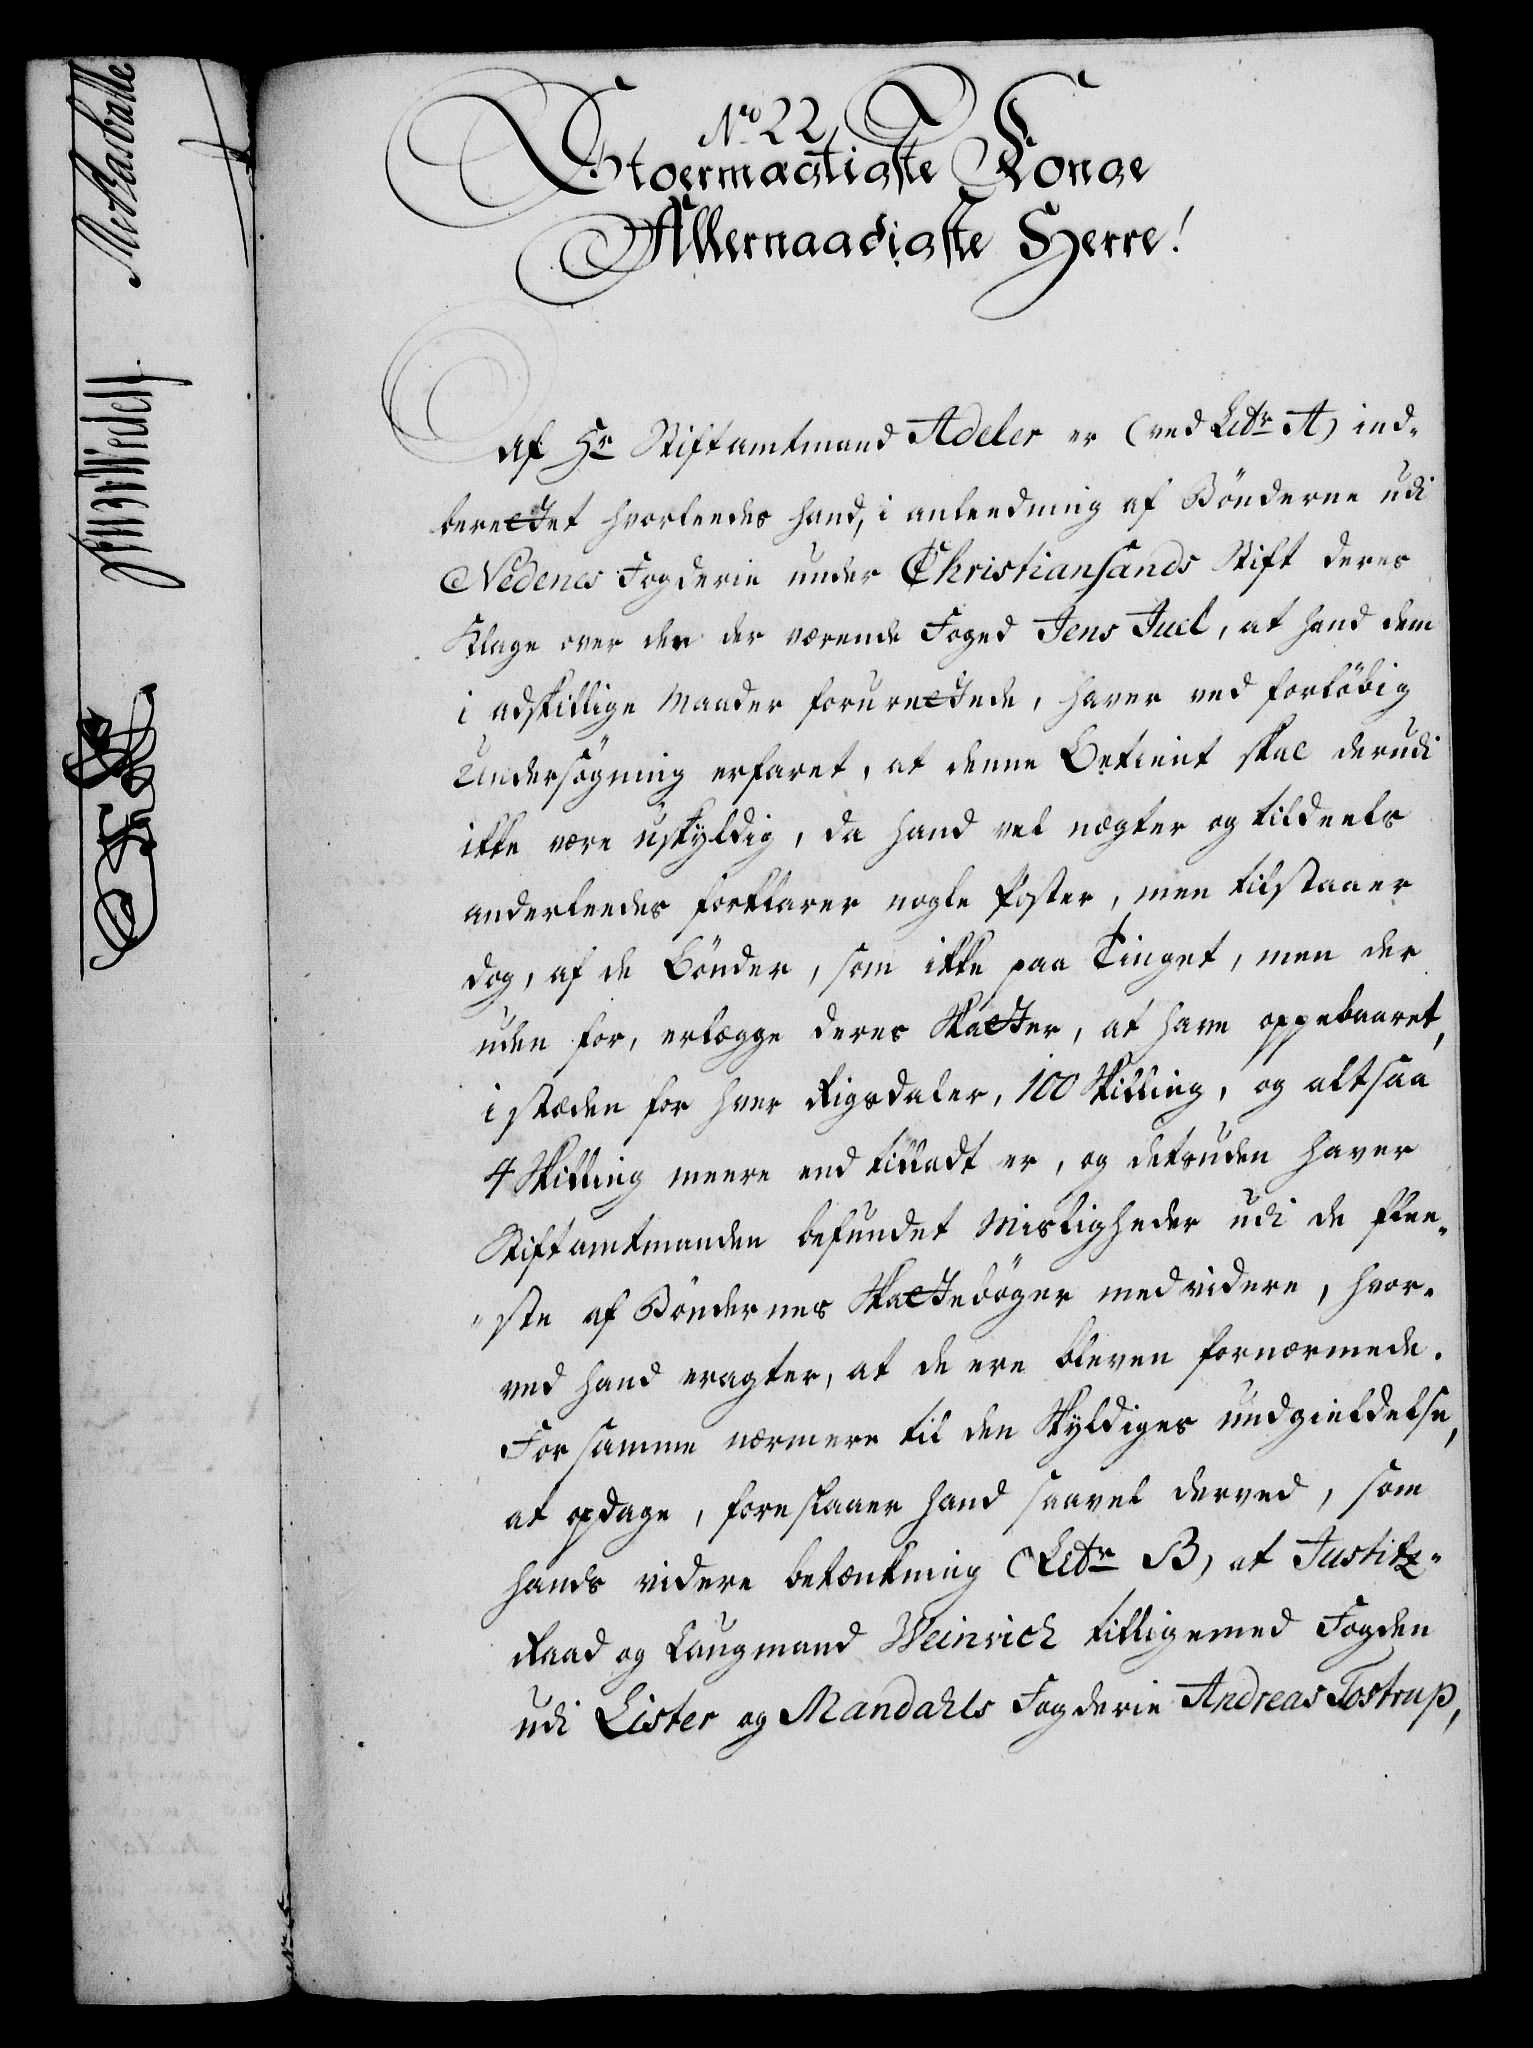 No 22
Stoermægtigste Konge
Allernaadigste Herre!
Af Hr Stiftamtmand Adeler er (ved Litr A) ind-
berettet hvorleedes hand, i anleedning af Bönderne udi
Nedenes Fogderie under Christiansands Stift deres
Klage over den der værende Foged Jens Juel, at hand dem
i adskillige Maader forurettede, haver ved forlöbig
Undersögning erfaret, at denne Betient skal derudi
ikke være uskyldig, da hand vel nægter og tildeels
anderleedes forklarer nogle Poster, men tilstaaer
dog, af de Bönder, som ikke paa Tinget, men der
uden for, erlægge deres Skatter, at have oppebaaret,
i stæden for hver Rigsdaler, 100 Skilling, og altsaa
4 Skilling meere end tilladt er, og detsuden haver
Stiftamtmanden befundet Misligheder udi de flee-
"ste af Böndernes Skattebøger med videre, hvor-
ved hand eragter, at de ere bleven fornærmede.
For samme nærmere til den Skyldiges undgieldelse,
at opdage, foreslaaer hand saavel derved, som
hands videre betænkning (Litr B) at Justitz-
Raad og Laugmand Weinrich tilligemed Fogden
udi Lister og Mandahls Fogderie Andreas Tostrup,